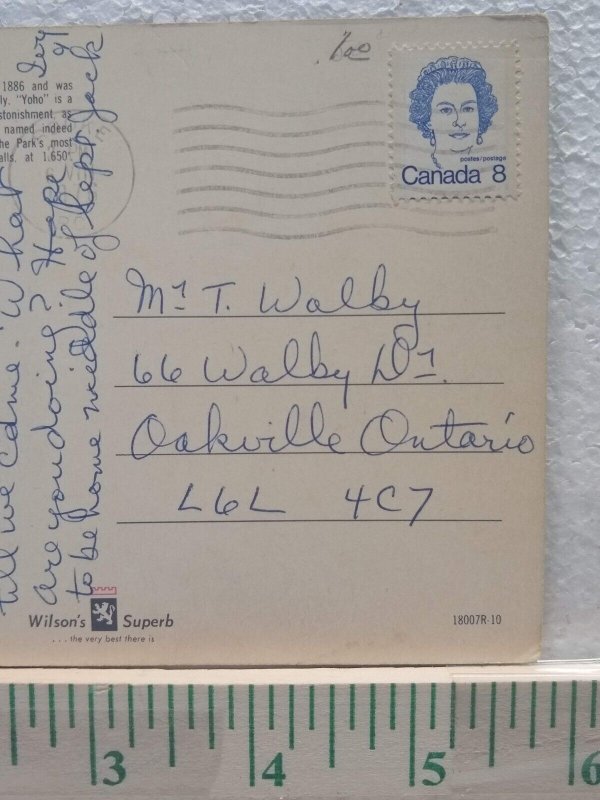 1886 and was
ly. "Yoho" is a
stonishment as
named indeed
he Park's most
alls, at 1,650
till we came. What
are you doing? Hope
to be home middle of Sept. Jack
postes/postage
Canada 8
Mr T. Walby
66 Walby Dr.
Oakville Ontario
L6L 4C7
Wilson's Superb
... the very best there is
18007R-10
3 4 5 6